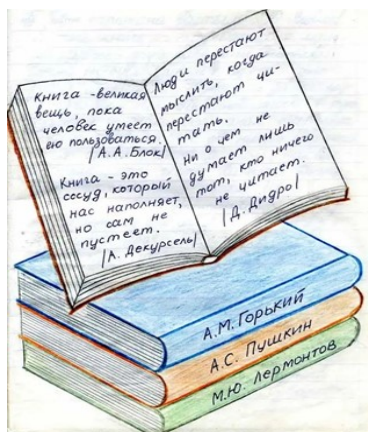 Книга - великая
вещь, пока
человек умеет
ею пользоваться.
|А.А.Блок|
Книга - это
сосуд, который
нас наполняет,
но сам не
пустеет.
|А. Декурсель|
Люди перестают
мыслить, когда
перестают чи-
тать.
Ни о чем не
думает лишь
тот, кто ничего
не читает.
|Д. Дидро|
А.М.Горький
А.С. Пушкин
М.Ю. Лермонтов